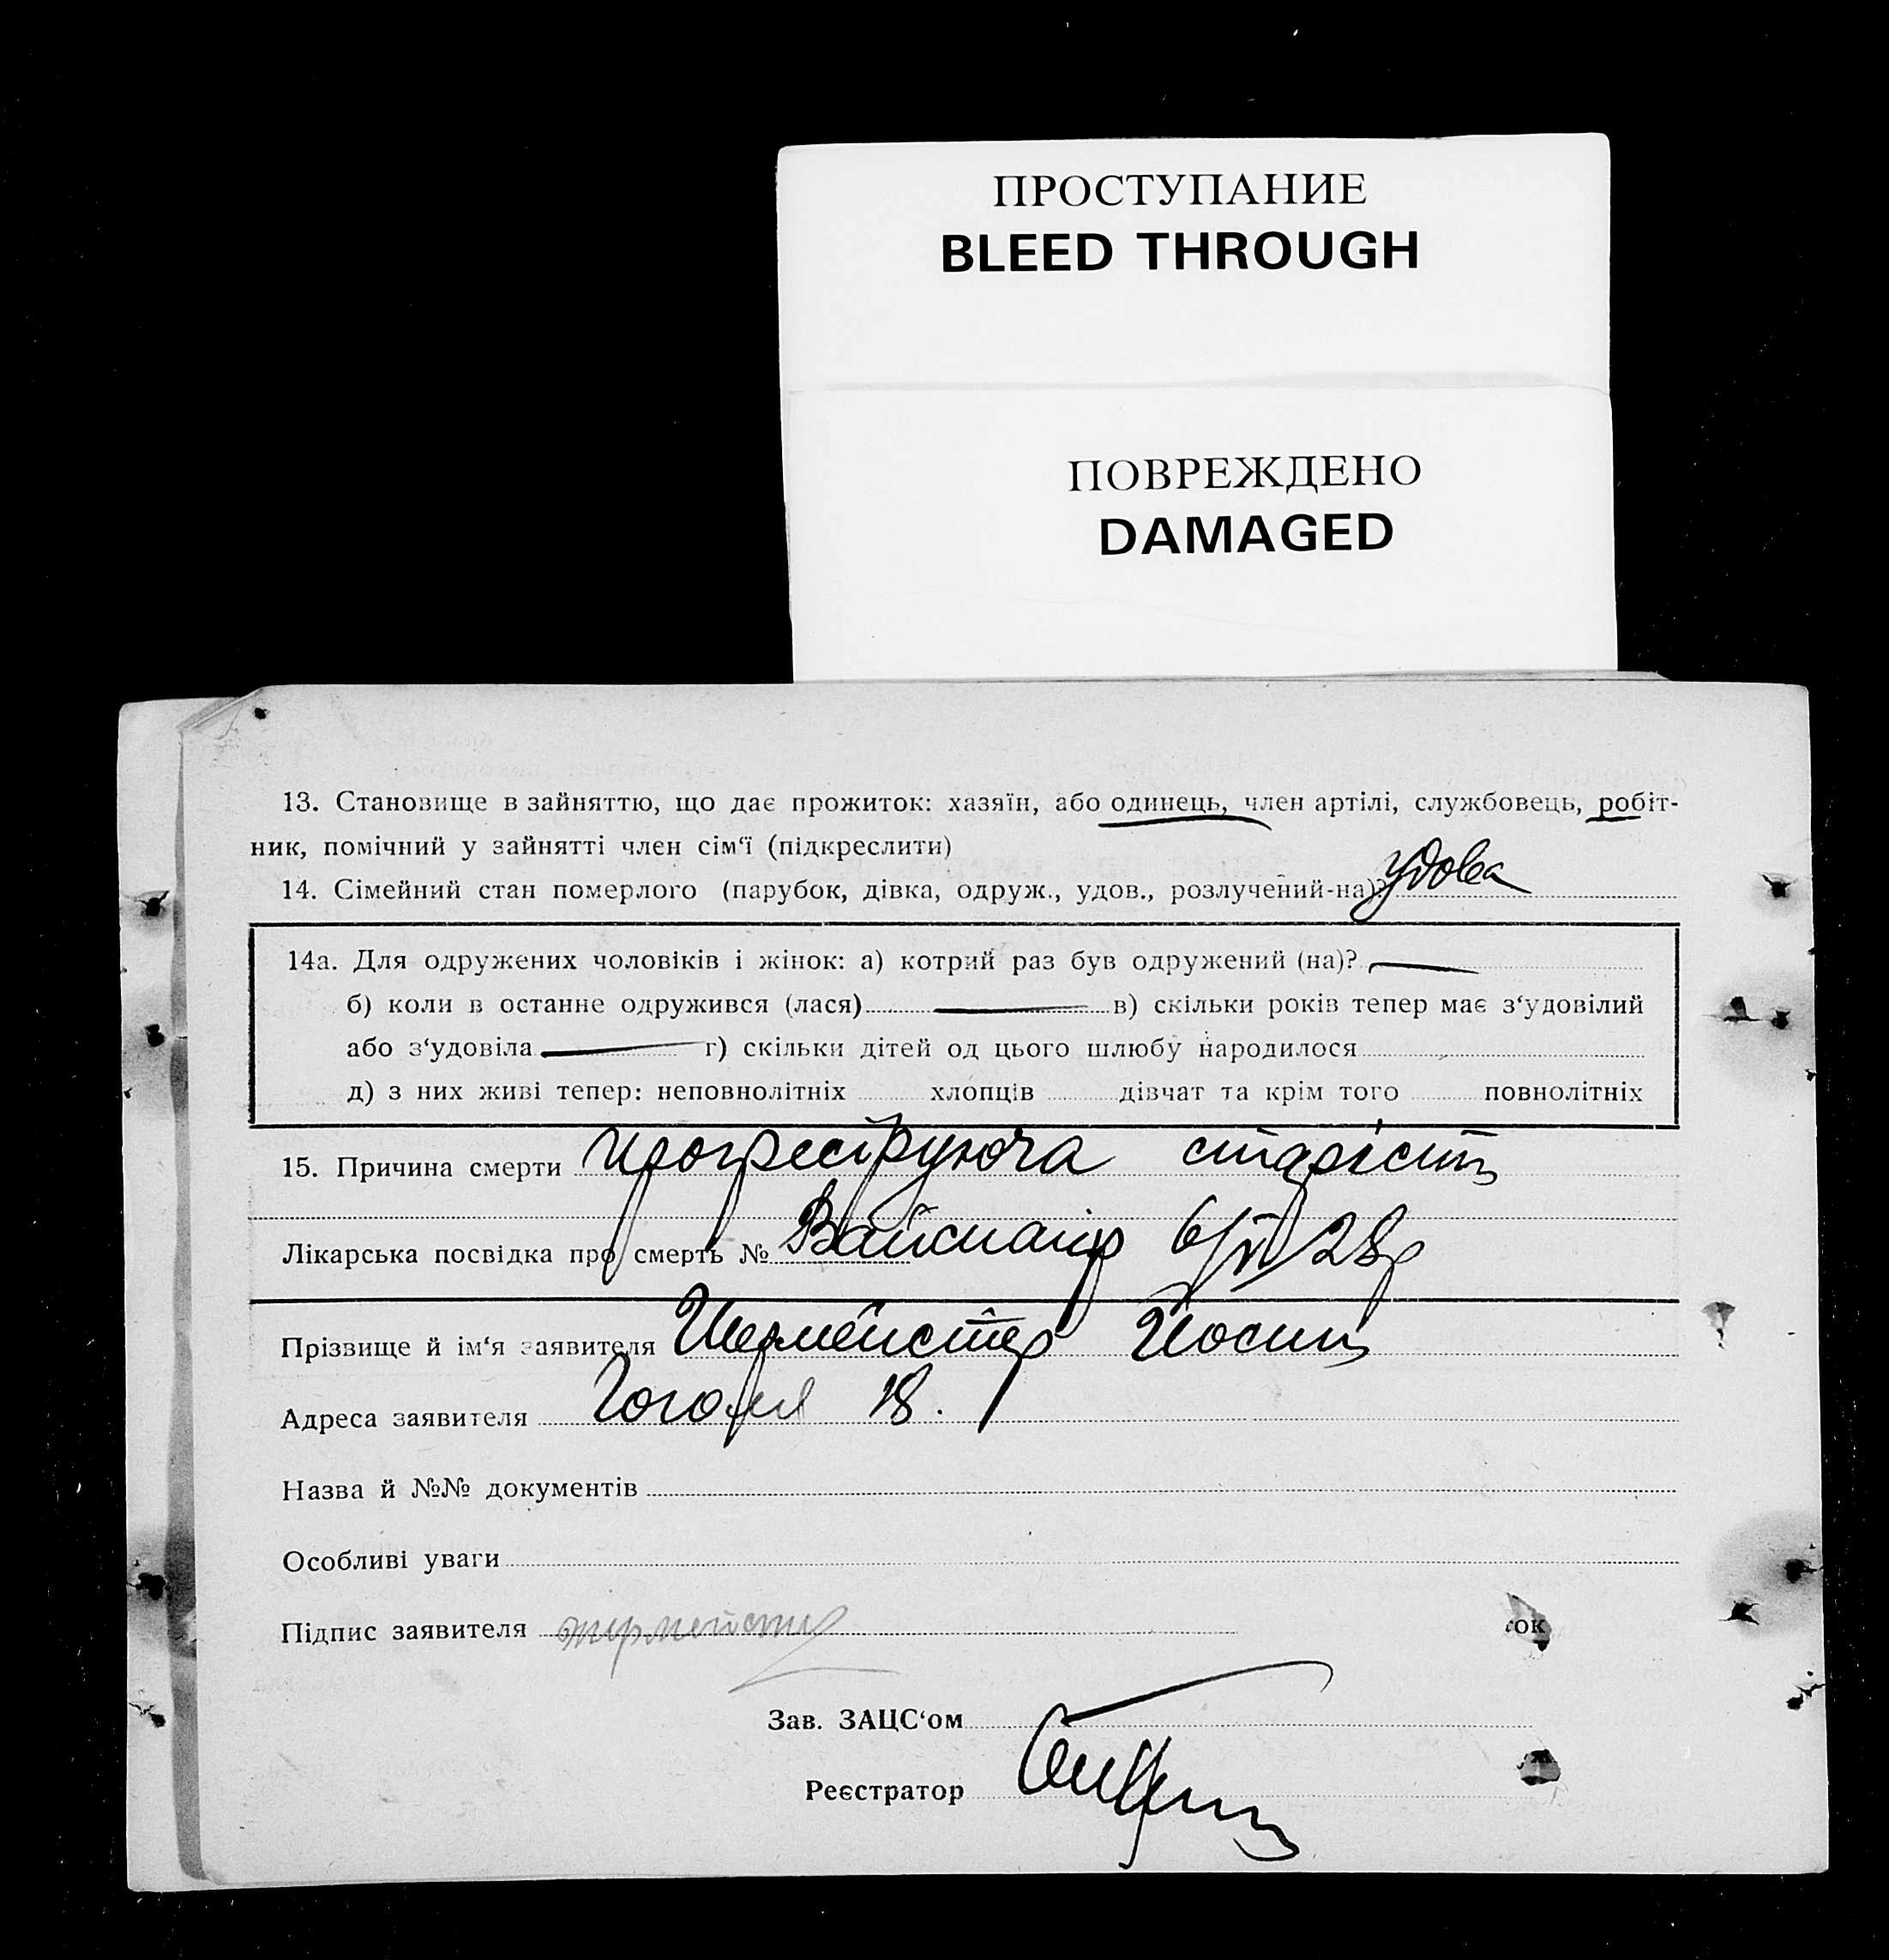 ПРОСТУПАНИЕ
BLEED THROUGH
ПОВРЕЖДЕНО
DAMAGED
13. Становище в зайняттю, що дає прожиток: хазяїн, або одинець, член артілі, службовець, робіт-
ник, помічний у зайнятті член сім‘ї (підкреслити)
14. Сімейний стан померлого (парубок, дівка, одруж., удов., розлучений-на)? удова
14а. Для одружених чоловіків і жінок: а) котрий раз був одружений (на)?
б) коли в останне одружився (лася) в) скільки років тепер має з‘удовілий
або з‘удовіла г) скільки дітей од цього шлюбу народилося
д) з них живі тепер: неповнолітніх хлопців дівчат та крім того повнолітніх
15. Причина смерти прогресіруюча старість
Лікарська посвідка про смерть № 6/VI 28р
Прізвище й ім‘я заявителя
Адреса заявителя Гоголя 18.
Назва й №№ документів
Особливі уваги
Підпис заявителя
ок
Зав. ЗАЦС‘ом
Реєстратор